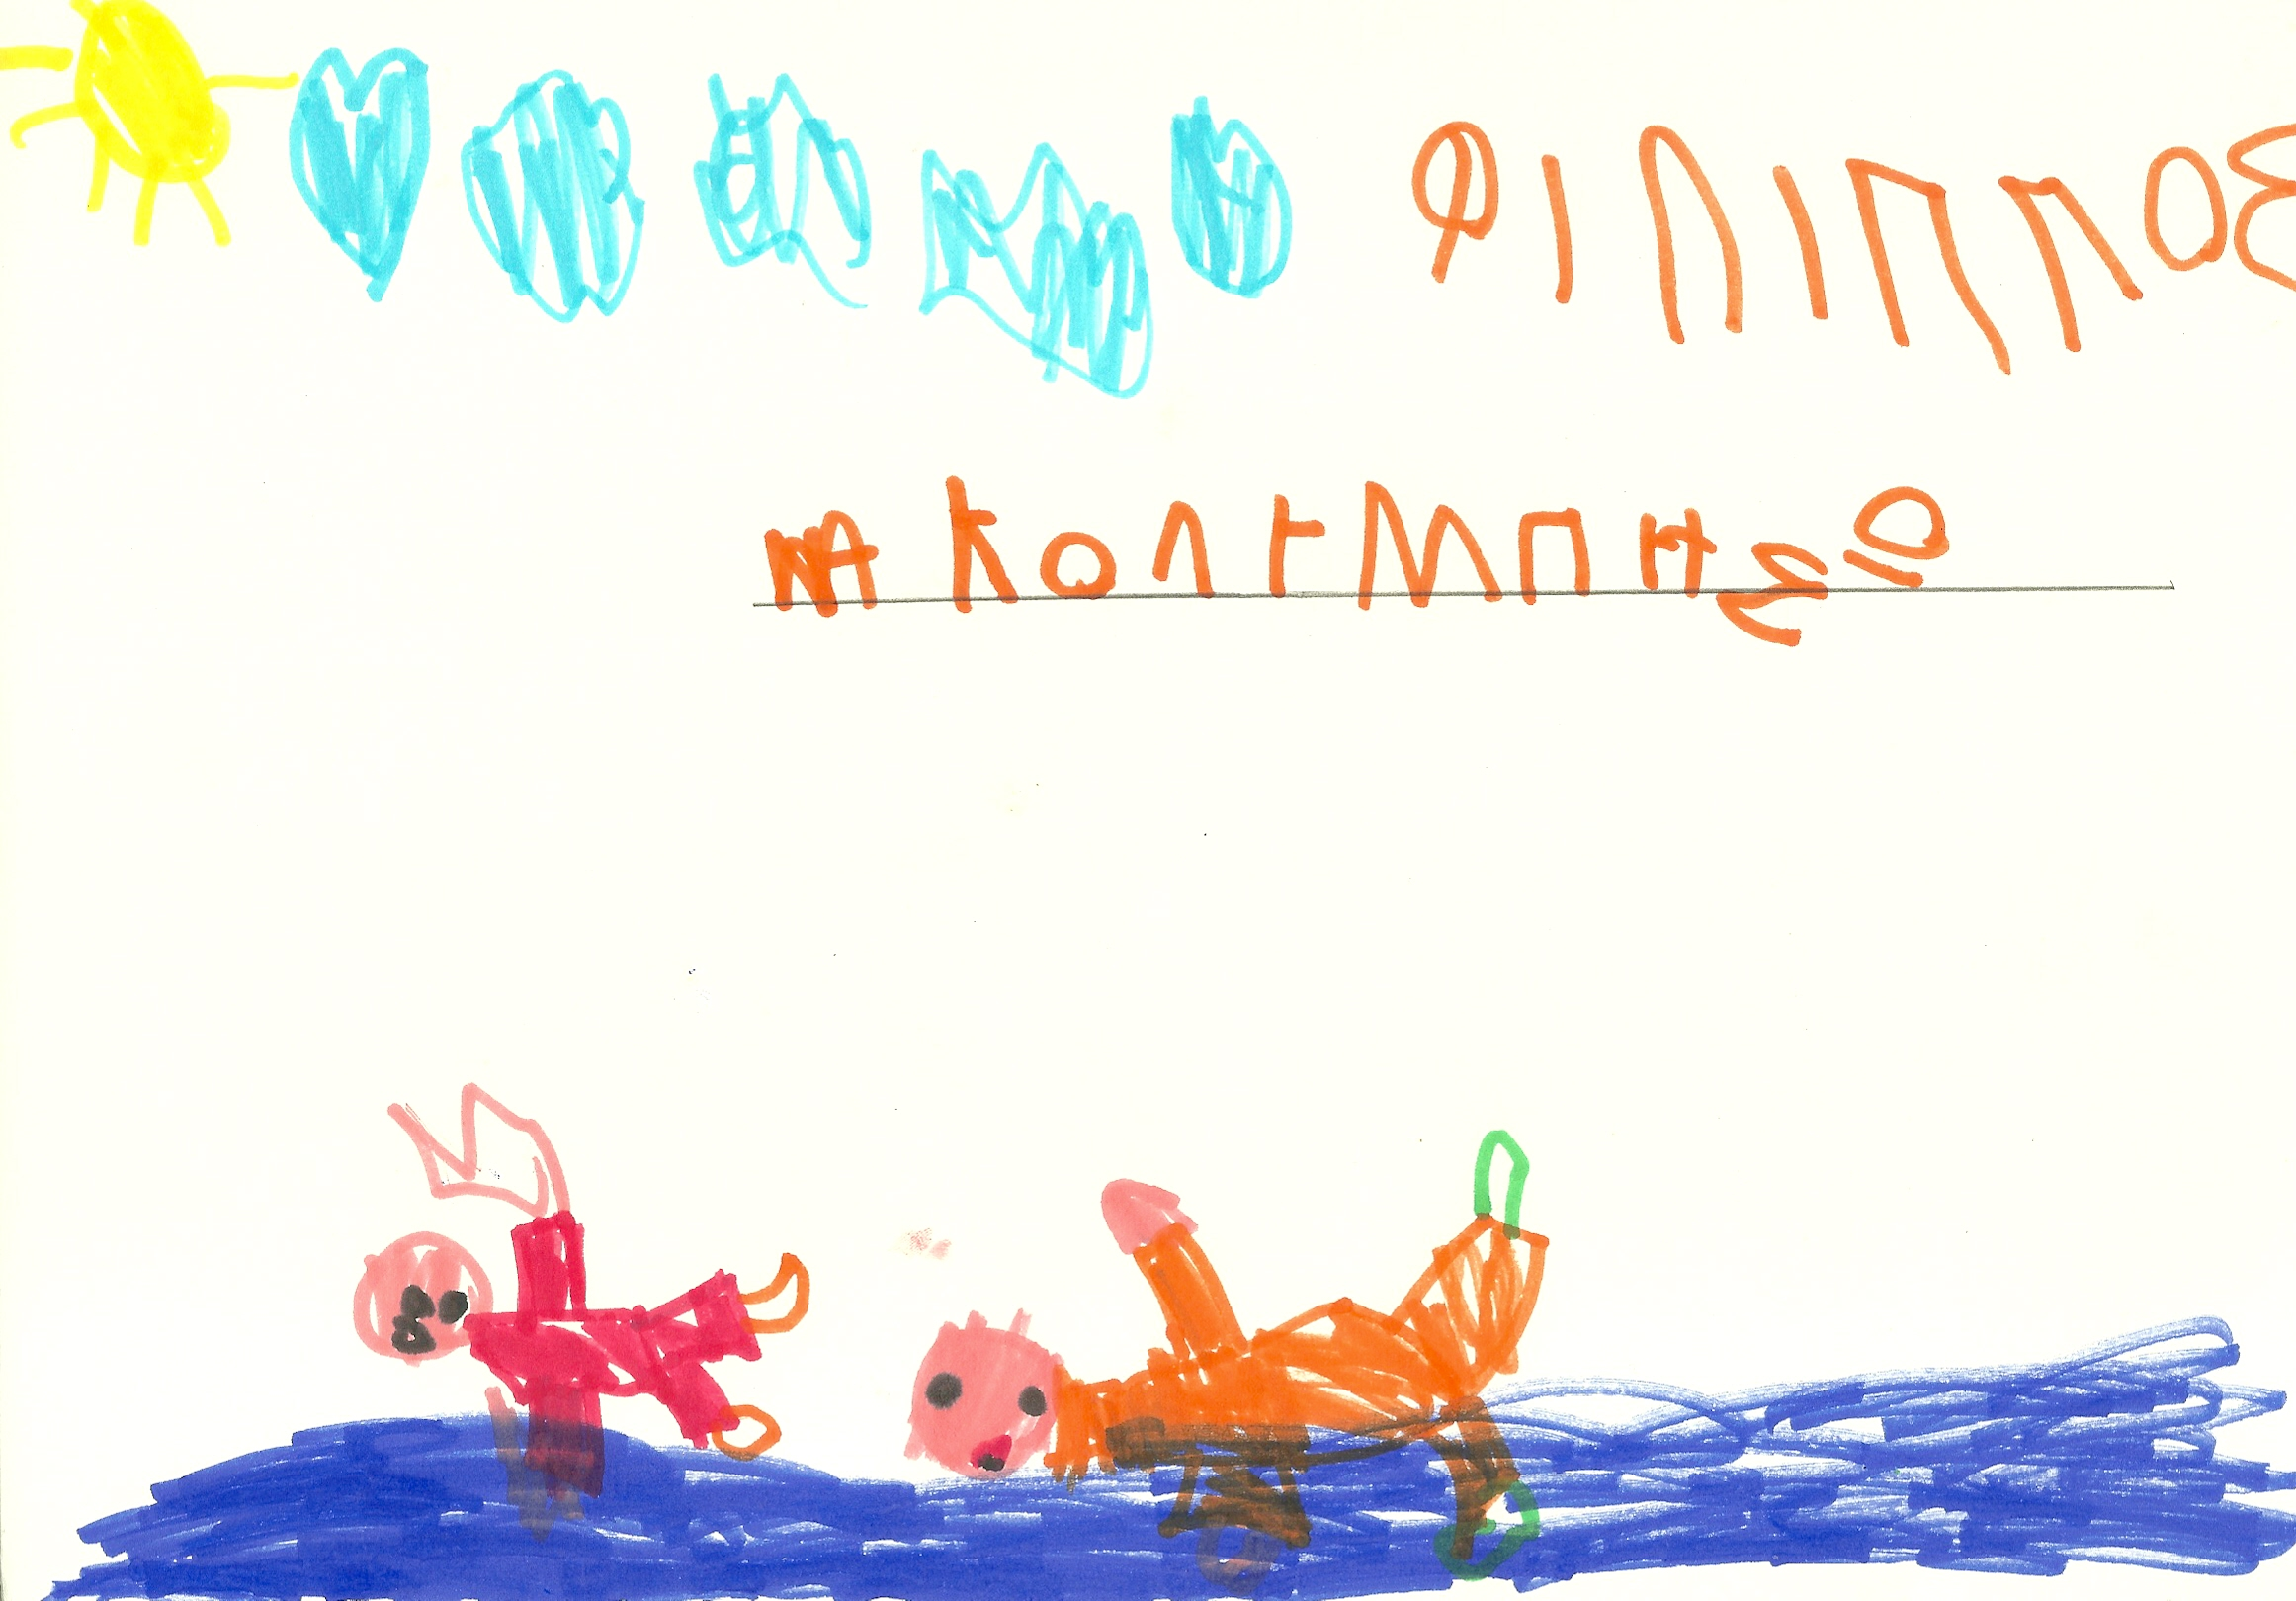 ΦΙΛΙΠΠΟΣ
ΝΑ ΚΟΛΥΜΠΗΣΩ